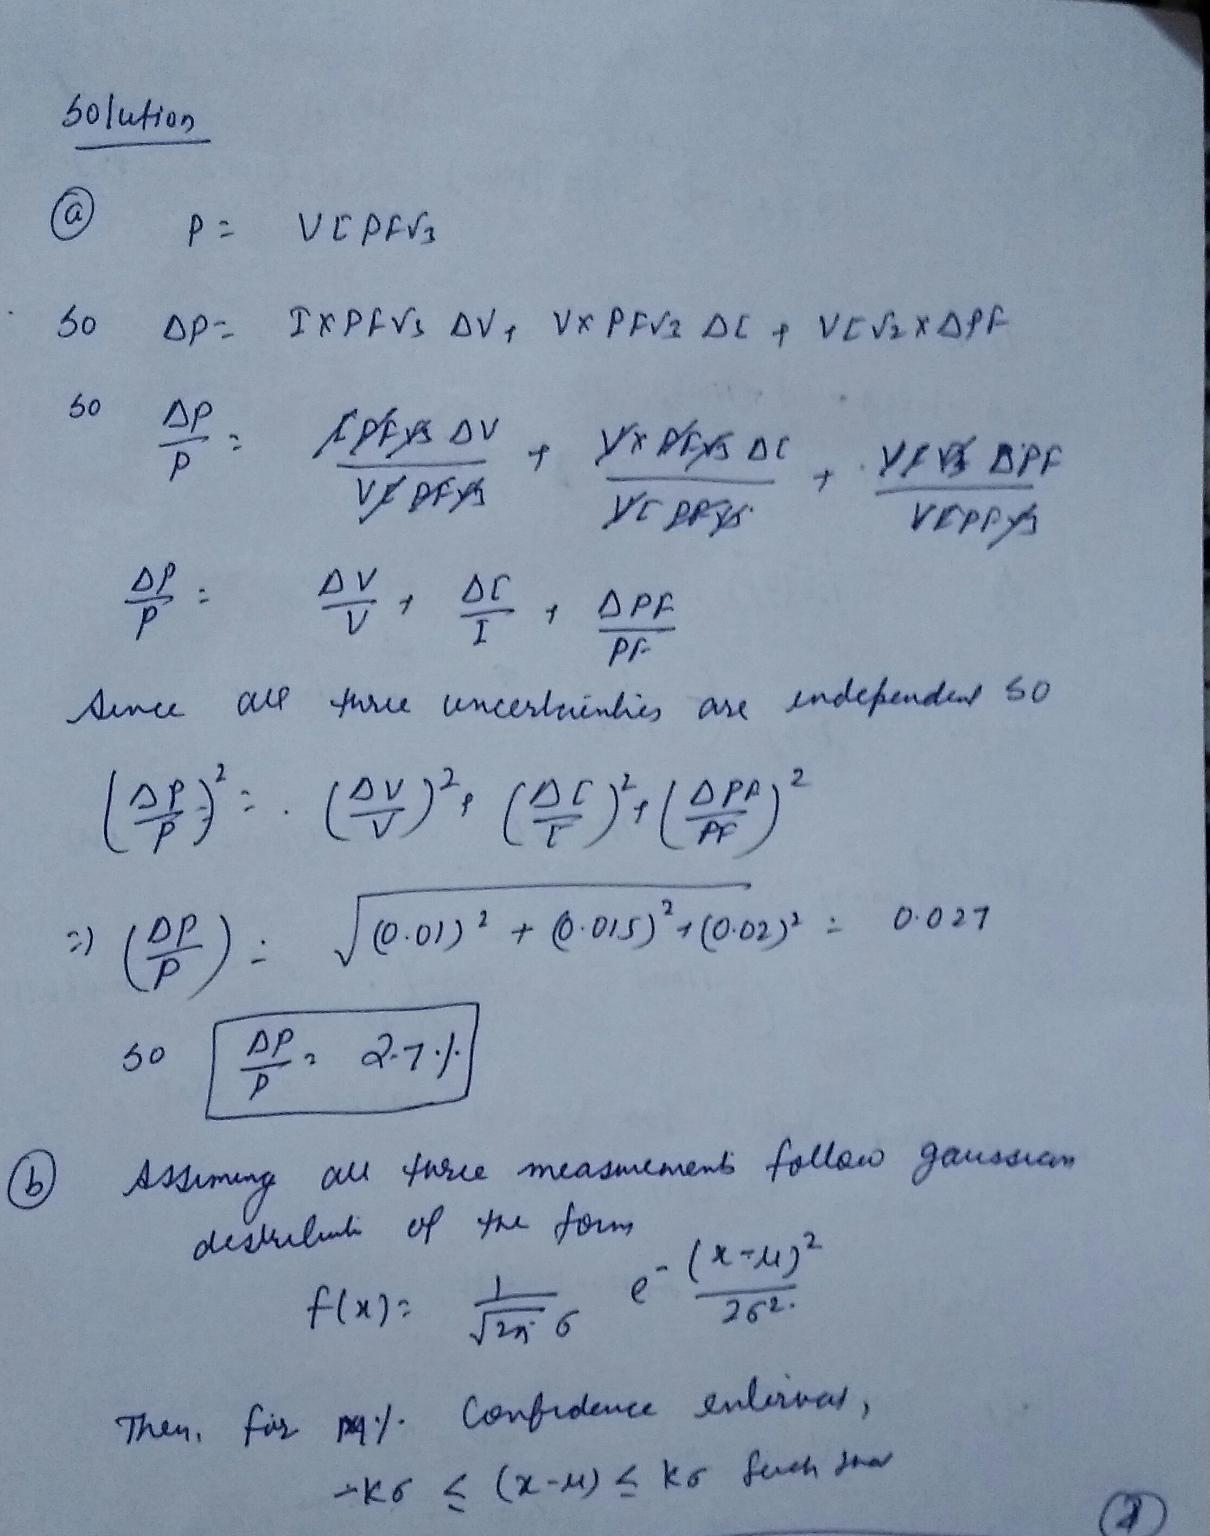 Solution
(a) P = VIPF√3
So ΔP = I×PF√3 ΔV + V×PF√3 ΔI + VI√3×ΔPF
So ΔP/P = IPF√3 ΔV/VIPF√3 + V×PF√3 ΔI/VIPF√3 + VI√3 ΔPF/VIPF√3
ΔP/P = ΔV/V + ΔI/I + ΔPF/PF
Since all three uncertainties are independent so
(ΔP/P)² = (ΔV/V)² + (ΔI/I)² + (ΔPF/PF)²
=) (ΔP/P) = √(0.01)² + (0.015)² + (0.02)² = 0.027
So ΔP/P = 2.7%
(b) Assuming all three measurements follow gaussian
distributi of the form
f(x) = 1/√2π σ e^-(x-μ)²/2σ².
Then, for % Confidence interval,
-kσ ≤ (x-μ) ≤ kσ Such that
(1)